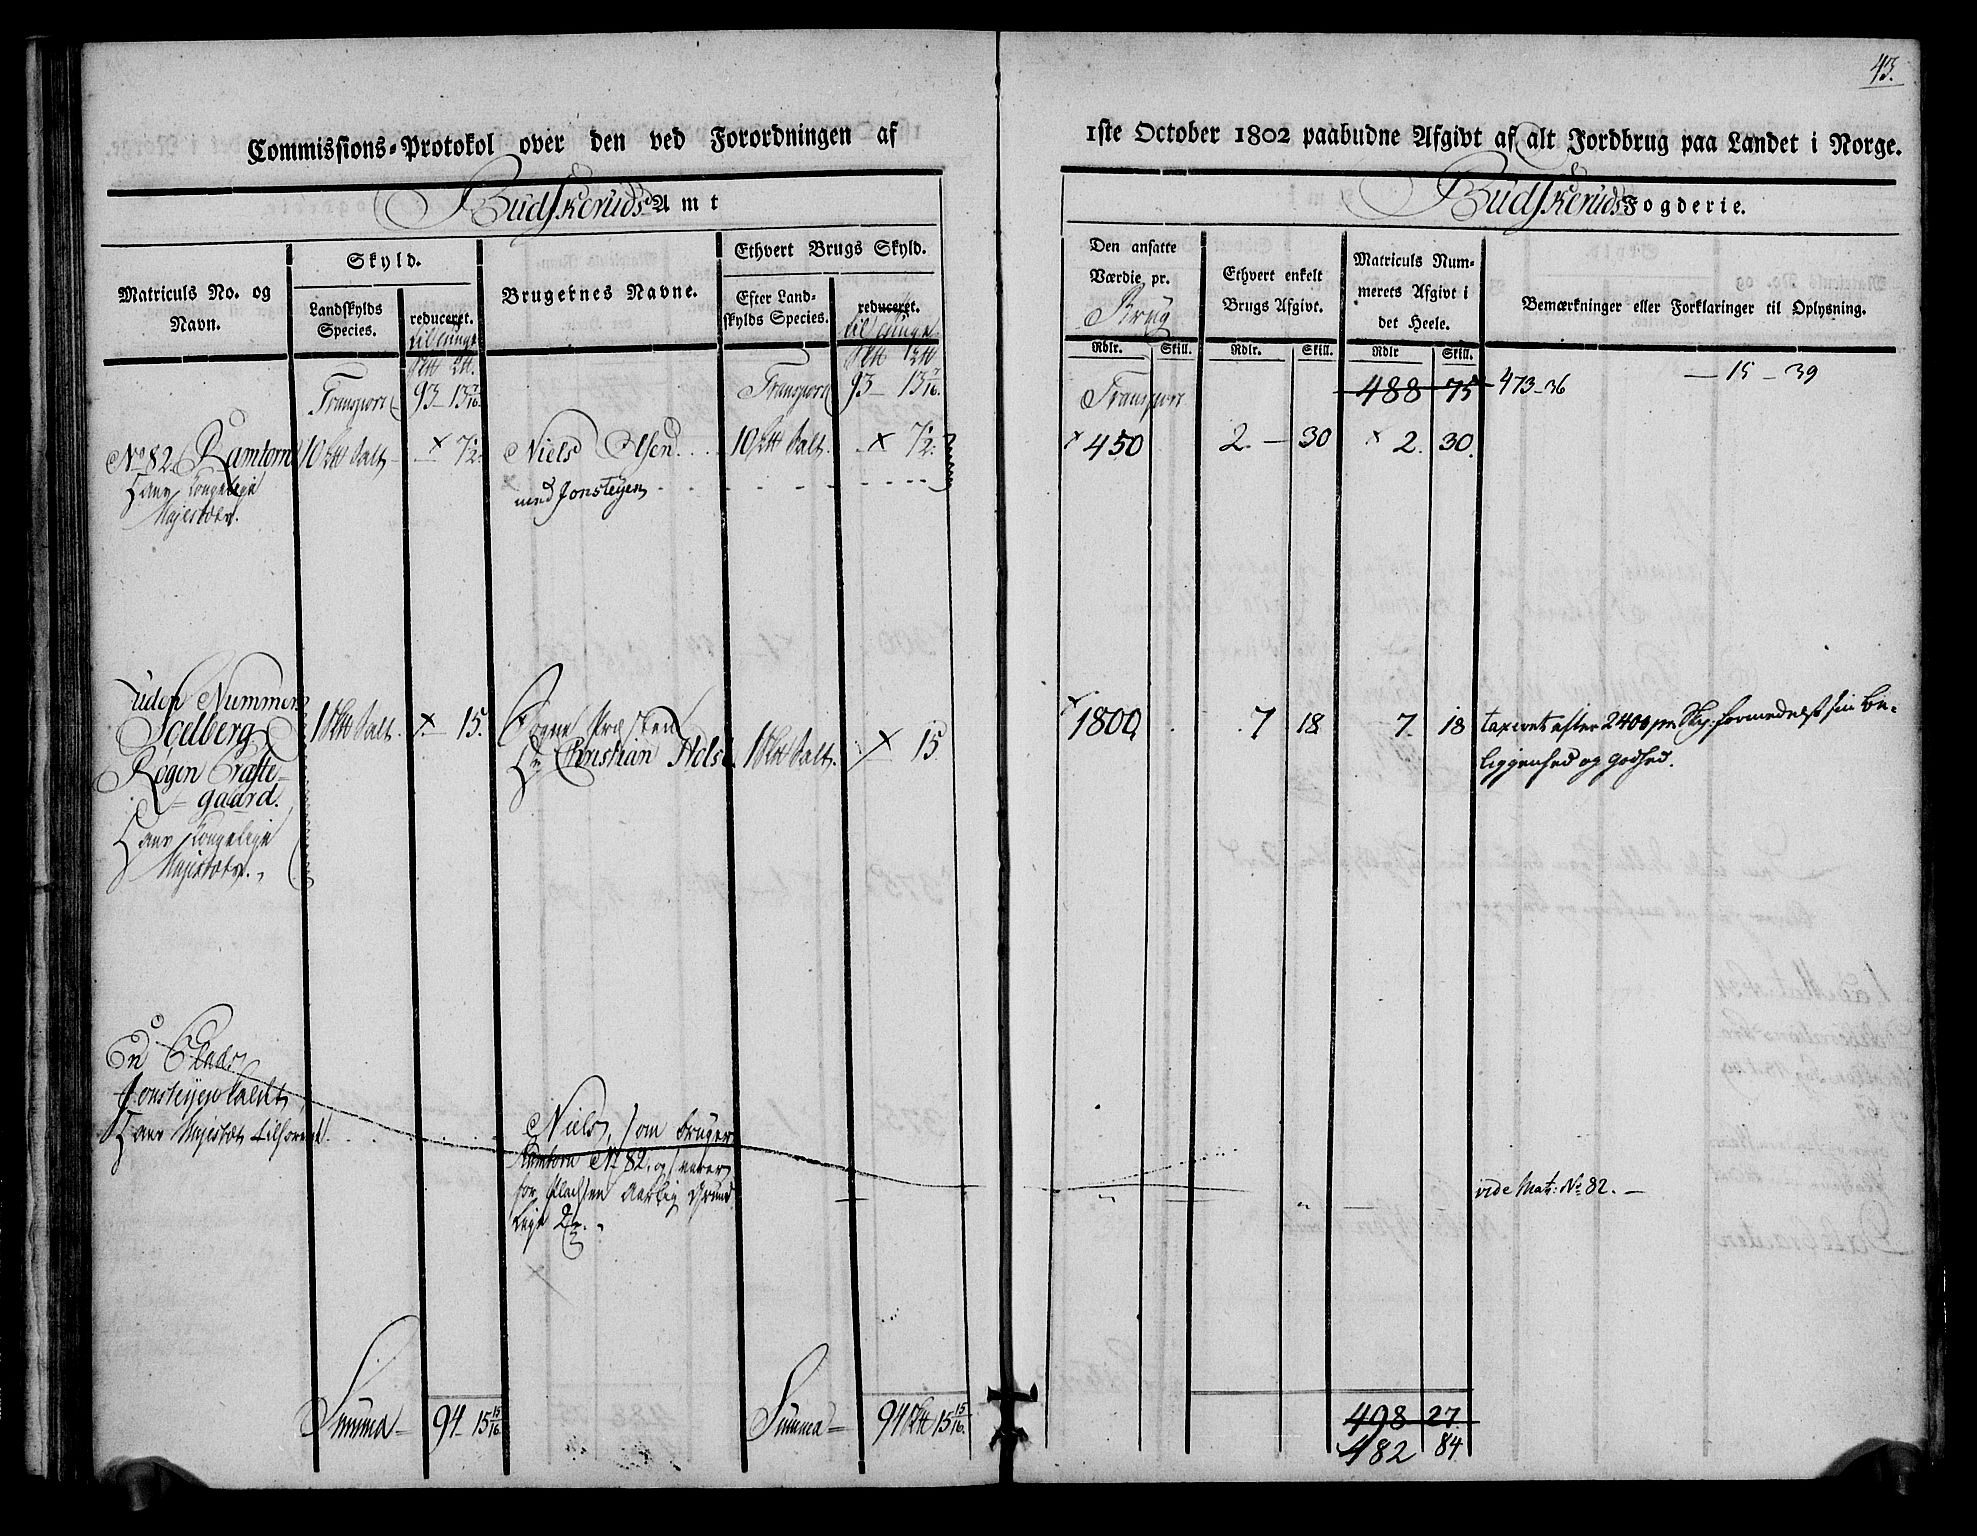 43.
Commissions-Protokol over den ved Forordningen af
1ste October 1802 paabudne Afgivt af alt Jordbrug paa Landet i Norge.
Budskeruds Amt
Budskeruds Fogderie.
Matriculs No. og
Navn.
Skyld.
Landskylds
Species.
reduceret.
til tunge
Brugernes Navne.
Ethvert Brugs Skyld.
Efter Land-
skylds Species.
reduceret.
til tunge
Den ansatte
Værdie pr.
Ethvert enkelt
Brugs Afgivt.
Matriculs Num-
merets Afgivt i
det Heele.
Bemærkninger eller Forklaringer til Oplysning.
Rdlr. Skill. Rdlr. Skill. Rdlr Skill.
Transport 93 - 13 7/16. Transport 93 - 13 7/16.
Transport 488 75 473-36 — 15 - 39
No 82. Ramtorn 10 Salt - × 7½. Niels Olsen 10 Salt. × 7½.
× 450 2. — 30 × 2. 30.
Hans Kongelige
Majestæt.
med Jonsteyen
uden Nummer
Scelberg
Rogen Præste-
gaard.
1 Salt. × 15.
Sogne Præsten
Hr Christian Holst 1 Salt. × 15
× 1800. 7 18. 7. 18 taxeret efter 2400 pr. Sky: formedelst sin be-
liggenhed og godhed.
Hans Kongelige
Majestæt.
En Plads
Jonsteyen kaldt,
Hans Majestæt tilhørende.
Niels, som bruger
Ramtorn No 82, og svarer
for Pladsen Aarlig Grund
leye 2
vide Matr: No 82. —
Summa — 94 - 15 15/16. Summa — 94 15 15/16.
498 27.
482 84